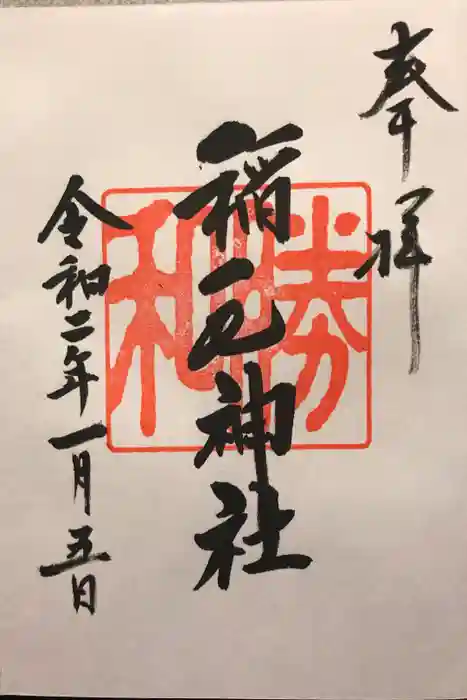 奉拝
稲毛神社
勝和
令和二年一月五日